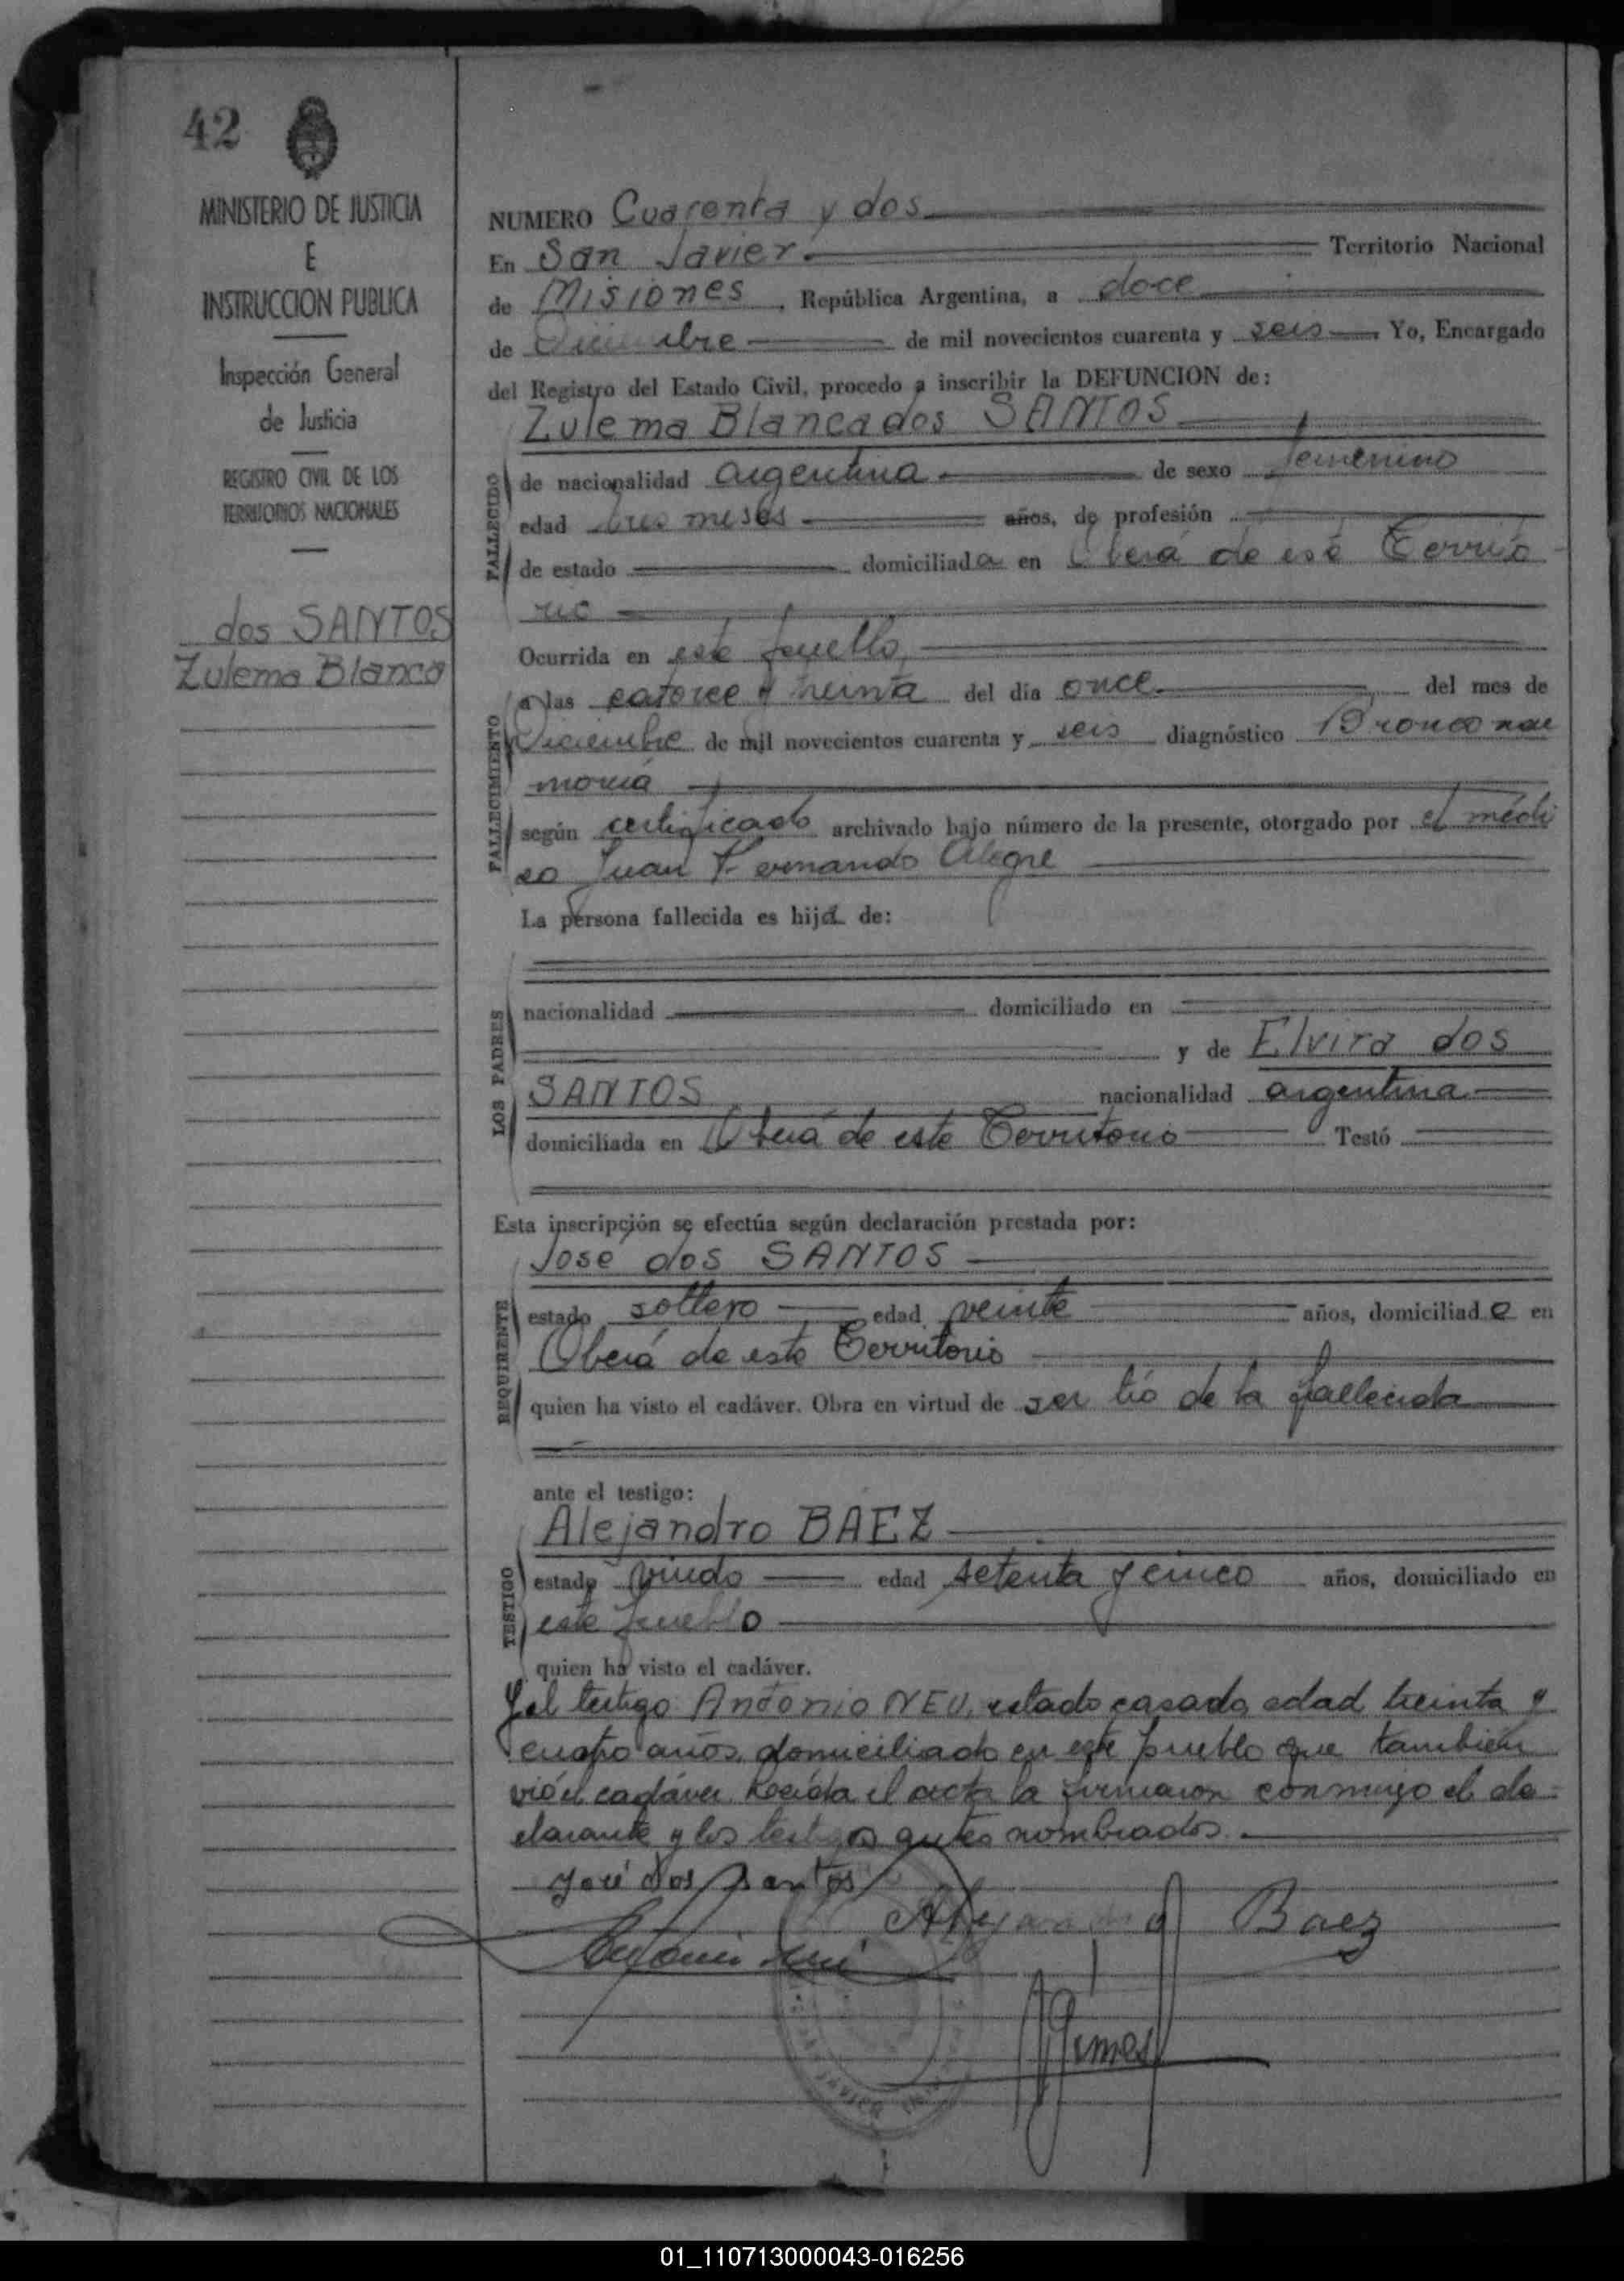 42
MINISTERIO DE JUSTICIA
E
INSTRUCCION PUBLICA
Inspección General
de Justicia
REGISTRO CIVIL DE LOS
TERRITORIOS NACIONALES
dos SANTOS
Zulema Blanca
NUMERO Cuarenta y dos
En San Javier Territorio Nacional
de Misiones, República Argentina, a doce
de Diciembre de mil novecientos cuarenta y seis Yo, Encargado
del Registro del Estado Civil, procedo a inscribir la DEFUNCION de:
Zulema Blanca dos SANTOS
FALLECIDO
de nacionalidad argentina de sexo femenino
edad tres meses años, de profesión
de estado domiciliada en Oberá de este Territo
rio
Ocurrida en este pueblo,
FALLECIMIENTO
a las catorce y treinta del día once del mes de
Diciembre de mil novecientos cuarenta y seis diagnóstico Bronconeu
monia
según certificado archivado bajo número de la presente, otorgado por el médi
co Juan Fernando Alegre
La persona fallecida es hija de:
LOS PADRES
nacionalidad domiciliado en
y de Elvira dos
SANTOS nacionalidad argentina
domiciliada en Oberá de este Territorio Testó
Esta inscripción se efectúa según declaración prestada por:
José dos SANTOS
REQUIRENTE
estado soltero edad veinte años, domiciliado en
Oberá de este Territorio
quien ha visto el cadáver. Obra en virtud de ser tío de la fallecida
ante el testigo:
Alejandro BAEZ
TESTIGO
estado viudo edad setenta y cinco años, domiciliado en
este pueblo
quien ha visto el cadáver.
Y el testigo Antonio NEU, estado casado, edad treinta y
cuatro años, domiciliado en este pueblo que también
vió el cadáver. Leída el acta la firmaron conmigo el de-
clarante y los testigos antes nombrados.
José dos Santos
Alejandro Baez
01_110713000043-016256